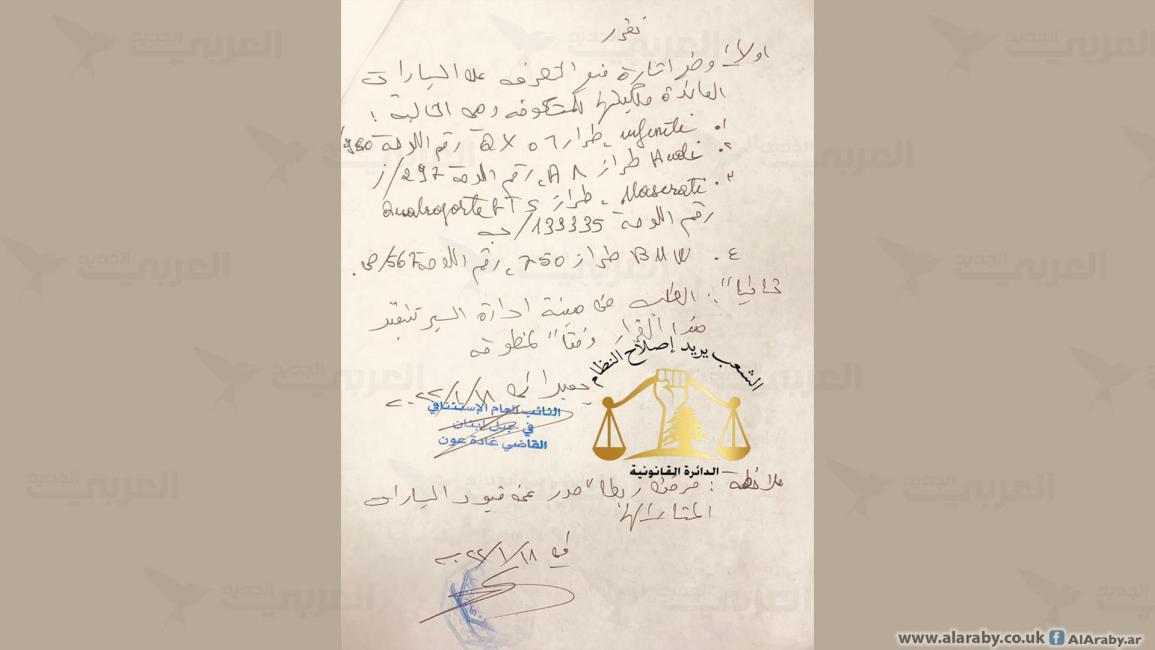 نقرر
اولاً: وضع اشارة منع التصرف على السيارات
العائدة ملكيتها للمشكو منه وهي التالية:
١. infiniti، طراز QX ٥٦ رقم اللوحة
٢. Audi طراز A ٨، رقم اللوحة 297/ز
٣. Maserati، طراز Quatroporte GTS
رقم اللوحة 133335/ب
٤. BMW طراز 750، رقم اللوحة 567/ص.
ثانياً: الطلب من هيئة ادارة السير تنفيذ
هذا القرار وفقاً لمنطوقه
بعبدا في ٢٠٢٢/١/١٨
النائب العام الإستئنافي
في جبل لبنان
القاضي غادة عون
الشعب يريد إصلاح النظام
الدائرة القانونية
ملاحظة: مرفق ربطاً صور عن قيود السيارات
المشار اليها
في ٢٠٢٢/١/١٨
العربي الجديد
www.alaraby.co.uk AlAraby.ar